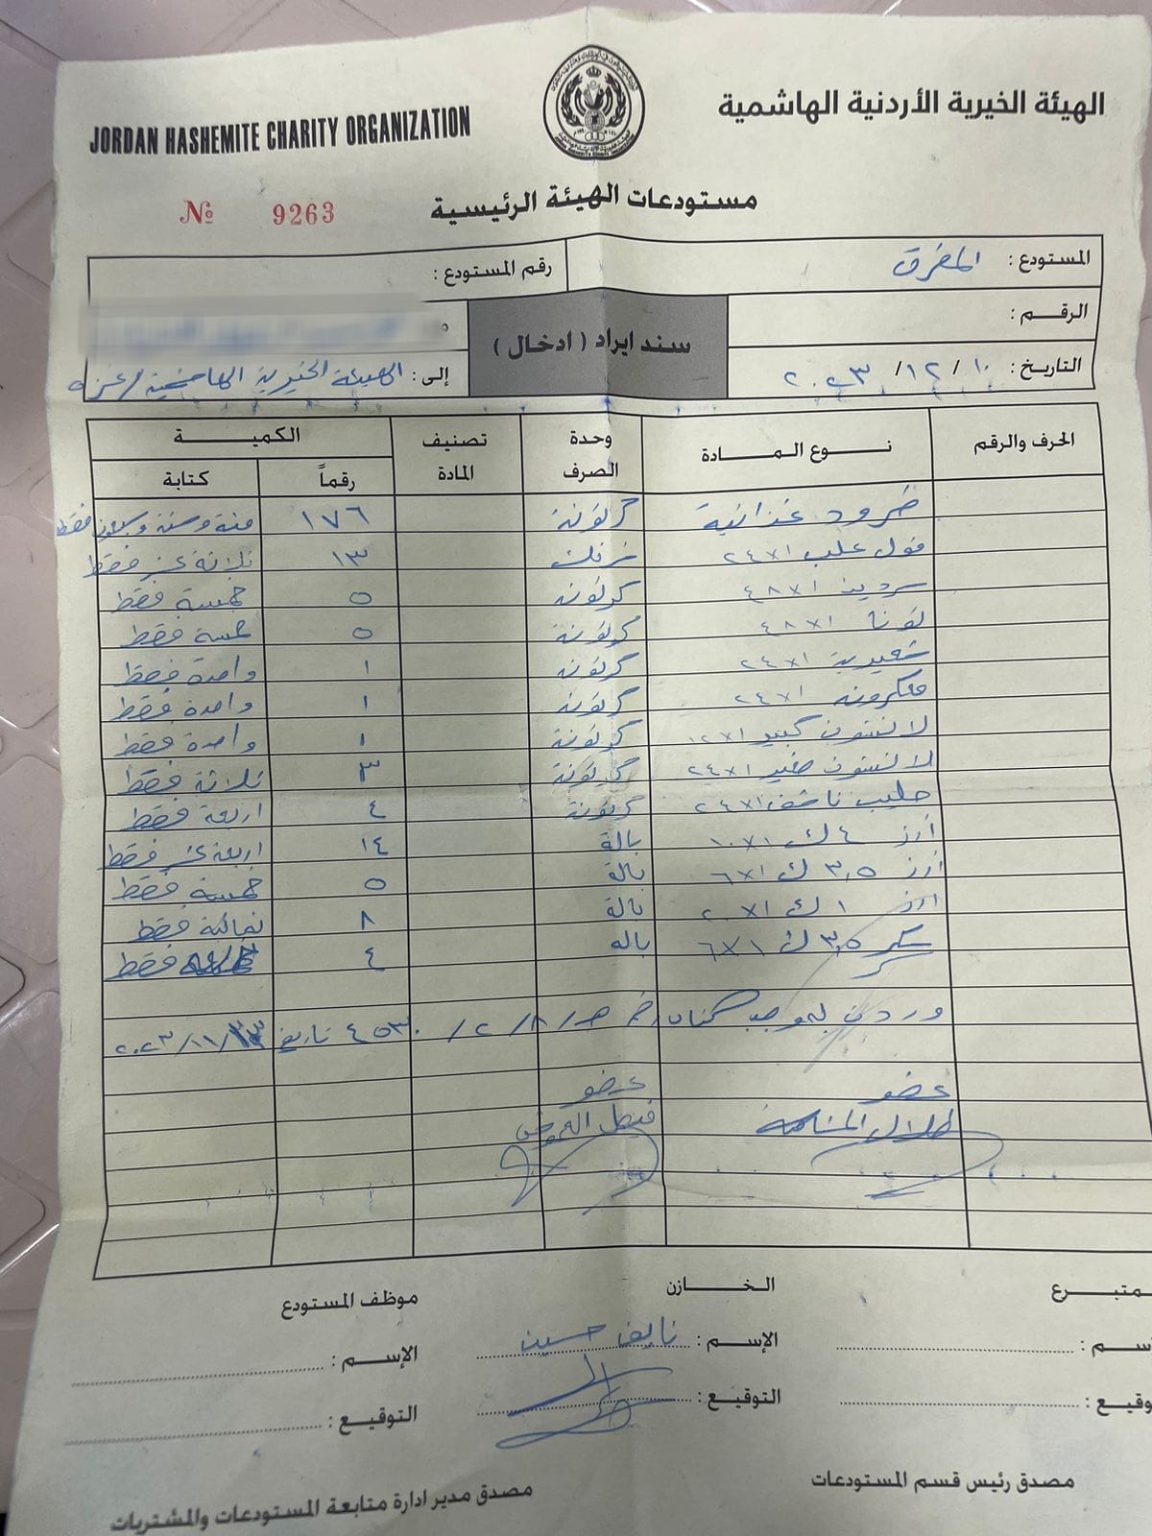 الهيئة الخيرية الأردنية الهاشمية
JORDAN HASHEMITE CHARITY ORGANIZATION
مستودعات الهيئة الرئيسية
№ 9263
المستودع : المفرق
رقم المستودع :
الرقم :
سند ايراد ( ادخال )
التاريخ : ١٠ / ١٢ / ٢٠٢٣
إلى : الهيئة الخيرية الهاشمية / غزة
الحرف والرقم نوع المادة وحدة الصرف تصنيف المادة الكمية
رقماً كتابة
طرود غذائية كرتونة ١٧٦ مئة وستة وسبعون فقط
فول علب ٢٤x١ ١٣ ثلاثة عشر فقط
سردين ٤٨x١ كرتونة ٥ خمسة فقط
تونا ٤٨x١ كرتونة ٥ خمسة فقط
شعيرية ٢٤x١ كرتونة ١ واحدة فقط
معكرونه ٢٤x١ كرتونة ١ واحدة فقط
لانشون كبير ١٢x١ كرتونة ١ واحدة فقط
لانشون صغير ٢٤x١ كرتونة ٣ ثلاثة فقط
حليب ناشف ٢٤x١ كرتونة ٤ اربعة فقط
أرز ٤ ك ١٠x١ بالة ١٤ اربعة عشر فقط
أرز ٣,٥ ك ٦x١ بالة ٥ خمسة فقط
ارز ١ ك ٢٠x١ بالة ٨ ثمانية فقط
سكر ٣,٥ ك ٦x١ باله ٤ فقط
وردت بموجب تاريخ
عضو عضو
طلال
متبرع الخازن موظف المستودع
الإسم : نايف حسين الإسم :
التوقيع : التوقيع :
مصدق رئيس قسم المستودعات
مصدق مدير ادارة متابعة المستودعات والمشتريات